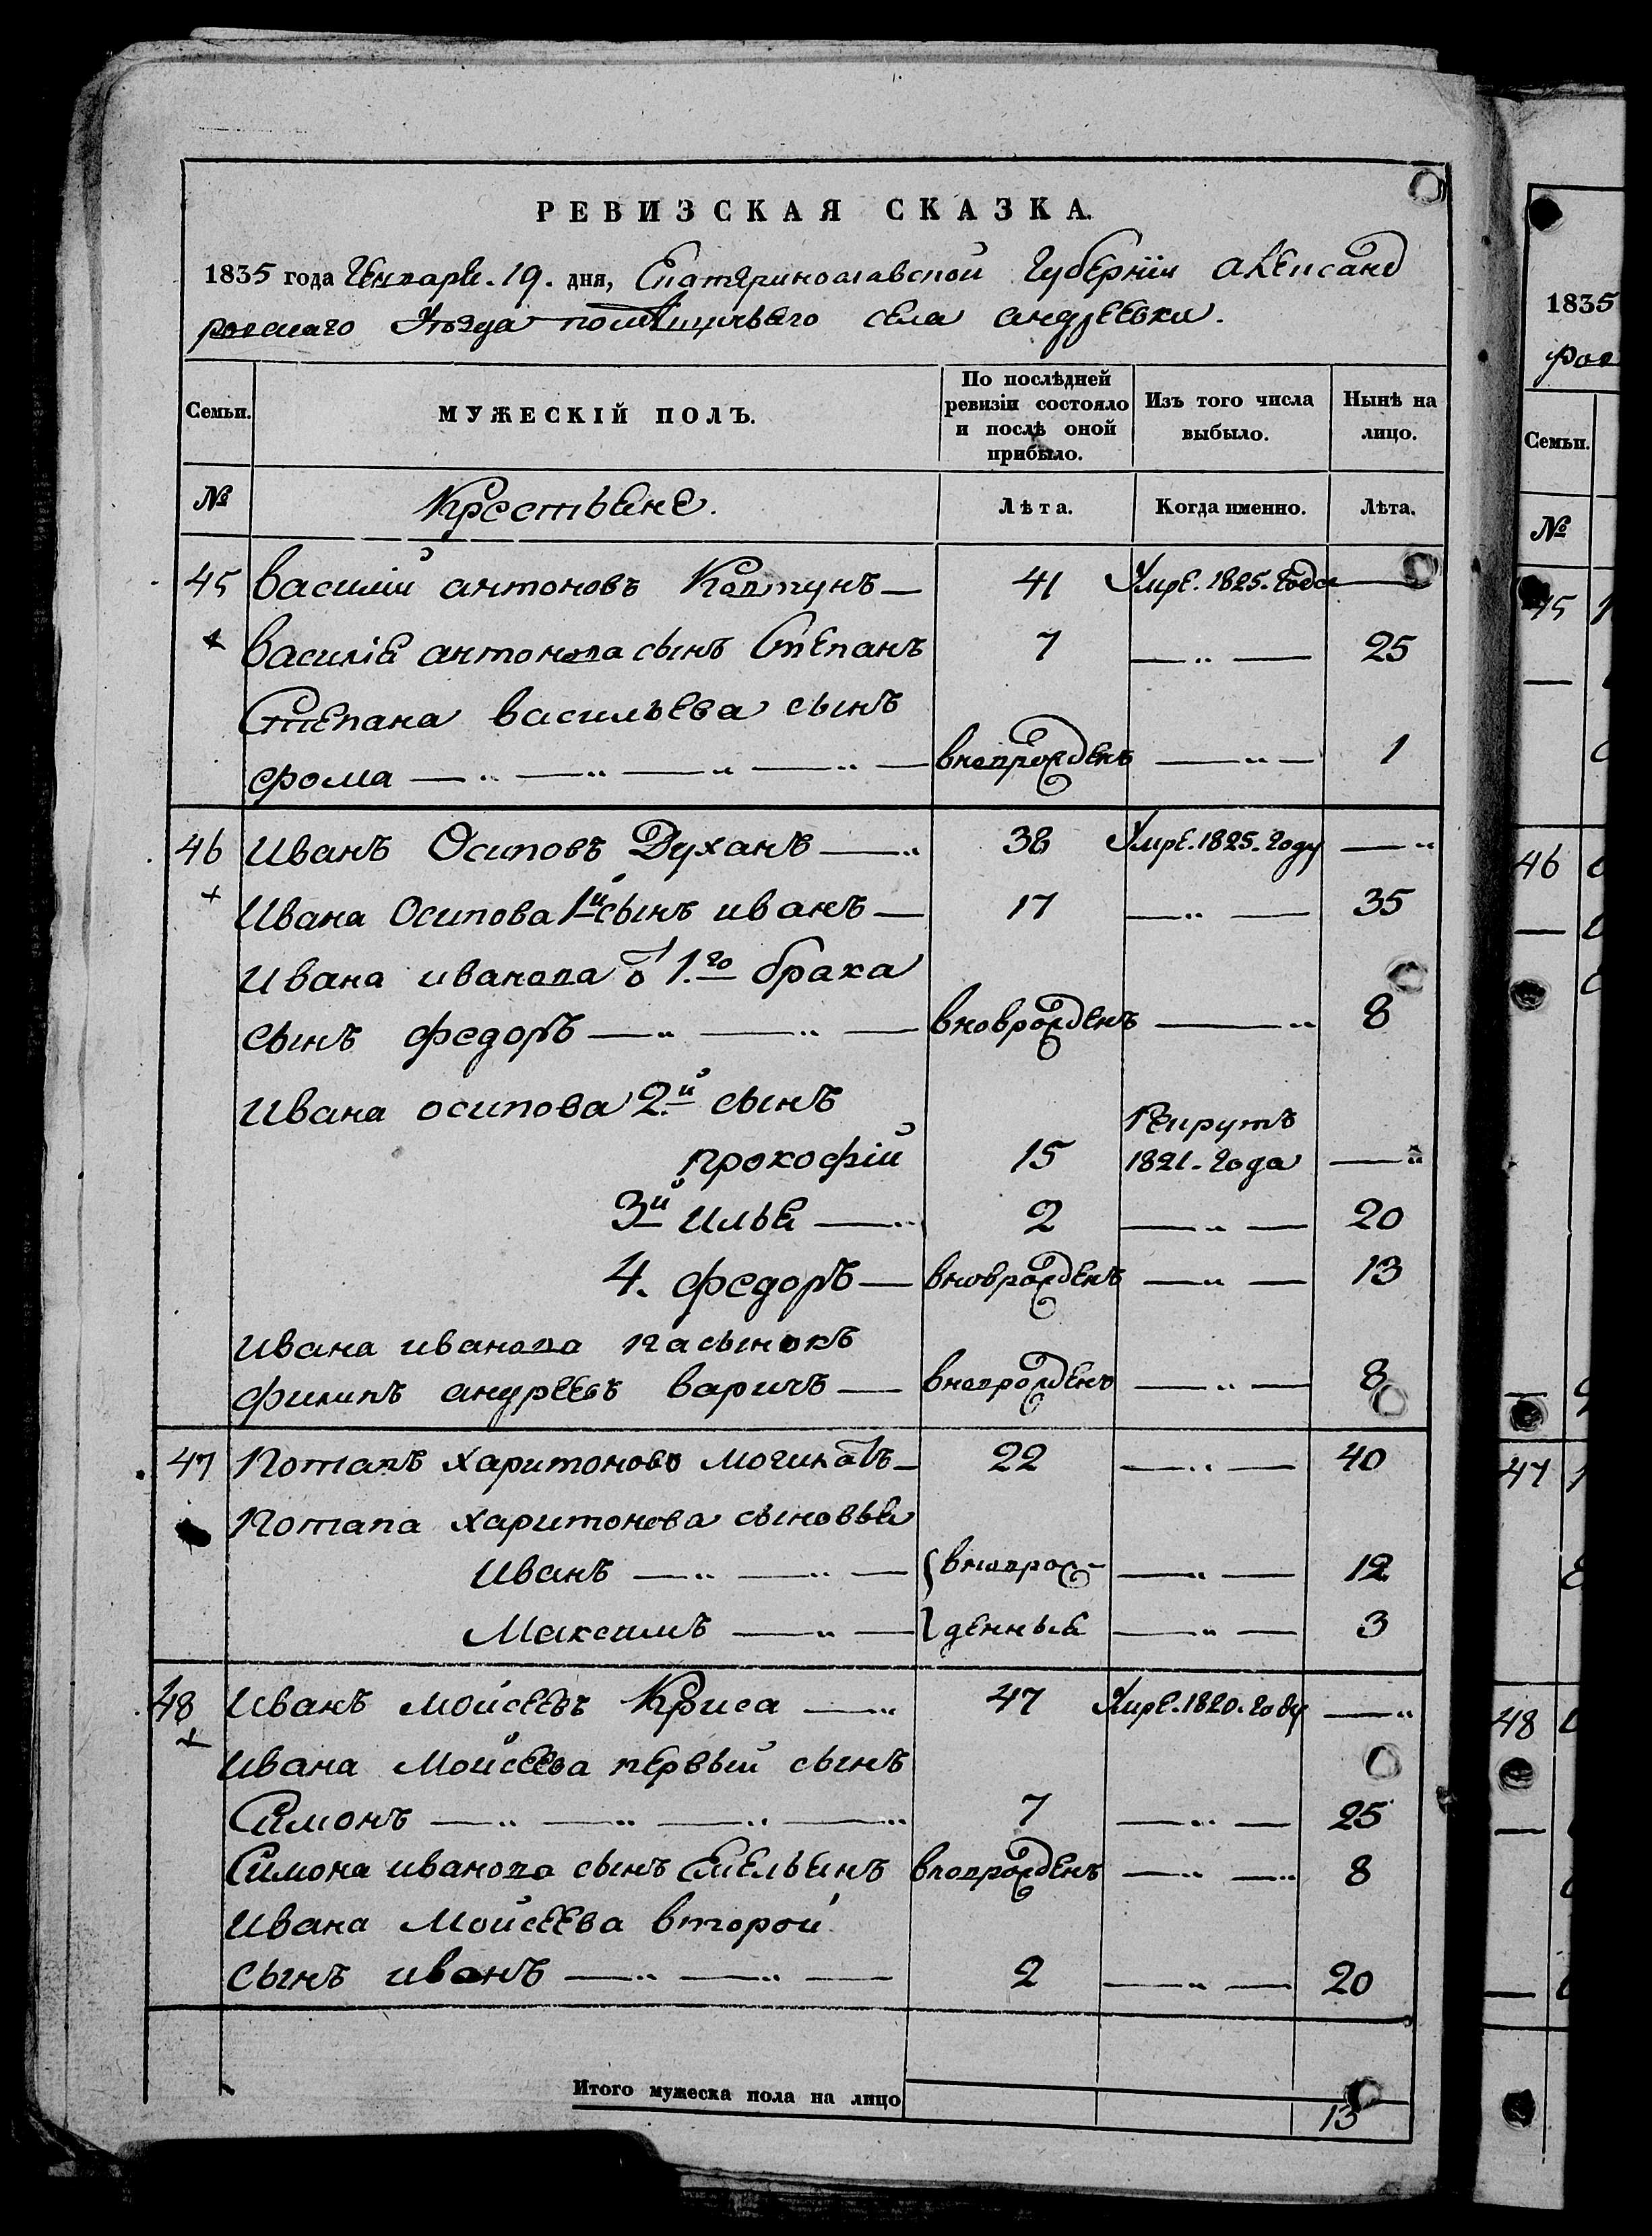 РЕВИЗСКАЯ СКАЗКА.
1835 года Генваря. 19. дня, Екатеринославской Губерніи Александ
ровскаго Уѣзда помѣщичьяго села андреевки.
Семьи. МУЖЕСКІЙ ПОЛЪ. По послѣдней ревизіи состояло и послѣ оной прибыло. Изъ того числа выбыло. Нынѣ на лицо.
№ Крестьяне. Лѣта. Когда именно. Лѣта.
45 Василій антоновъ Ковтунъ — 41 Умре. 1825. Года —
+ Василія антонова сынъ Степанъ 7 — „ — 25
Степана васильева сынъ
фома — „ — „ — „ — „ — вноврожденъ — „ — 1
46 Иванъ Осиповъ Духанъ — „ 38 Умре. 1825. году — „
+ Ивана Осипова 1й сынъ иванъ — 17 — „ — 35
Ивана иванова от 1.го брака
сынъ федоръ — „ — „ — вноврожденъ — „ 8
Ивана осипова 2.й сынъ
прокофій 15 Рекрутъ 1821. года — „
3й Илья — „ 2 — „ — 20
4. федоръ — вноврожденъ — „ — 13
Ивана иванова пасынокъ
филипъ андреевъ варичъ — вноврожденъ — „ — 8
47 Потапъ харитоновъ — 22 — „ — 40
Потапа харитонова сыновья
Иванъ — „ — „ — { вноврож- — „ — 12
Максимъ — „ — { денныя — „ — 3
48 Иванъ моисеевъ Криса — „ 47 Умре. 1820. году — „
+ Ивана Моисеева первый сынъ
Симонъ — „ — „ — „ — „ 7 — „ — 25
Симона иванова сынъ Емельянъ вноврожденъ — „ — „ 8
Ивана Моисеева второй
сынъ иванъ — „ — „ — 2 — „ — 20
Итого мужеска пола на лицо 13
1835
ров
Семьи.
№
45
46
47
48